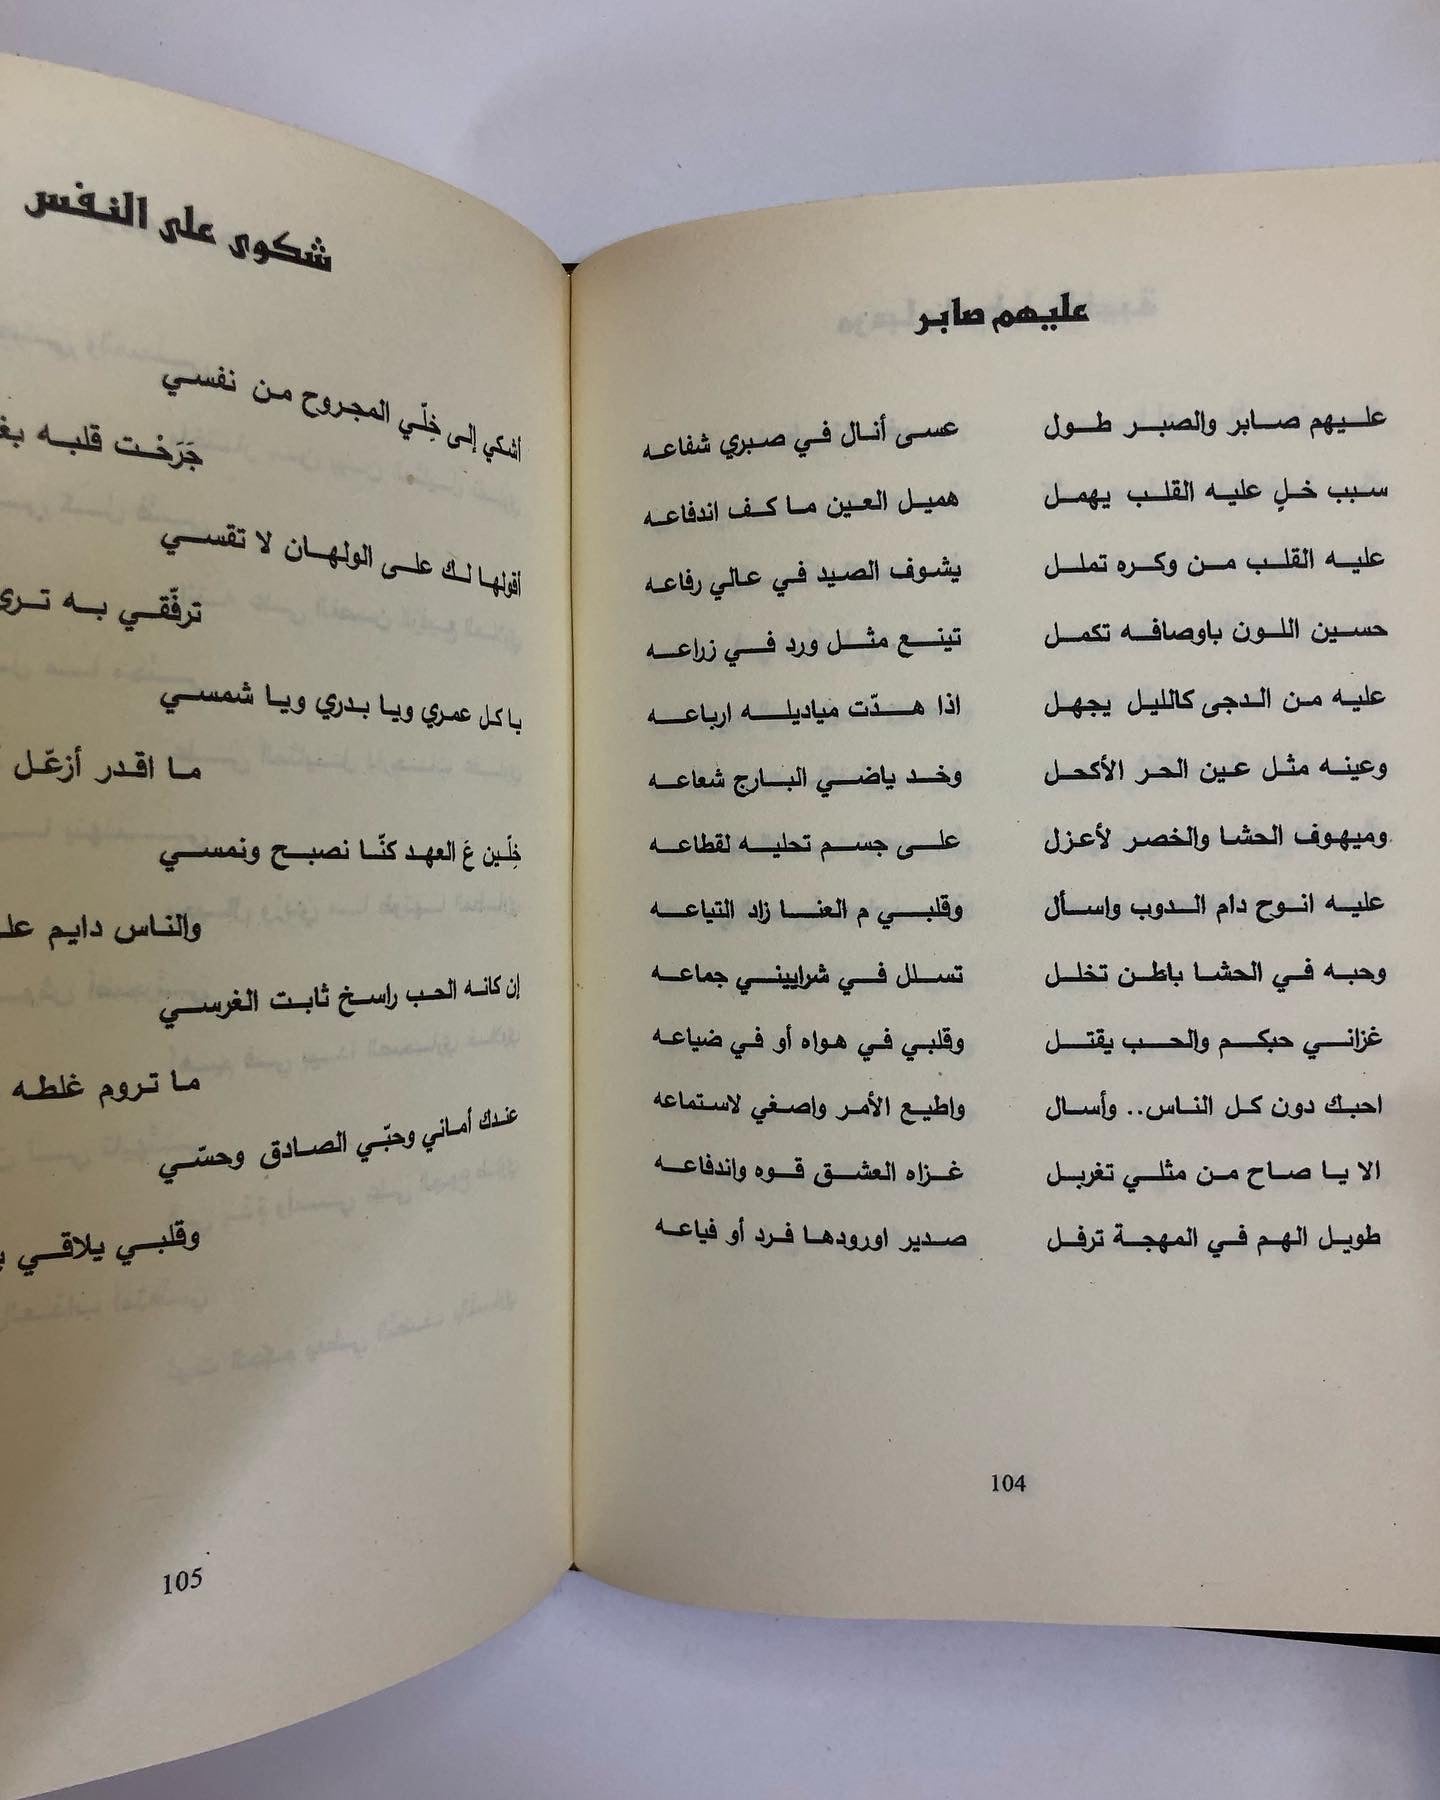 عليهم صابر
عليهم صابر والصبر طول عسى أنال في صبري شفاعه
سبب خلٍ عليه القلب يهمل هميل العين ما كف اندفاعه
عليه القلب من وكره تملل يشوف الصيد في عالي رفاعه
حسين اللون باوصافه تكمل تينع مثل ورد في زراعه
عليه من الدجى كالليل يجهل اذا هدّت مياديله ارباعه
وعينه مثل عين الحر الأكحل وخد ياضي البارج شعاعه
وميهوف الحشا والخصر لأعزل على جسم تحليه لقطاعه
عليه انوح دام الدوب واسأل وقلبي م العنا زاد التياعه
وحبه في الحشا باطن تخلل تسلل في شراييني جماعه
غزاني حبكم والحب يقتل وقلبي في هواه أو في ضياعه
احبك دون كل الناس.. وأسال واطيع الأمر واصغي لاستماعه
الا يا صاح من مثلي تغربل غزاه العشق قوه واندفاعه
طويل الهم في المهجة ترفل صدير اورودها فرد أو فياعه
104
شكوى على النفس
أشكي إلى خِلّي المجروح من نفسي
جَرَحْت قلبه
أقولها لك على الولهان لا تقسي
ترفّقي به
يا كل عمري ويا بدري ويا شمسي
ما اقدر أزعّل
خِلّين عَ العهد كنّا نصبح ونمسي
والناس دايم
إن كانه الحب راسخ ثابت الغرسي
ما تروم غلطه
عندك أماني وحبّي الصادقِ وحسّي
وقلبي يلاقي
105